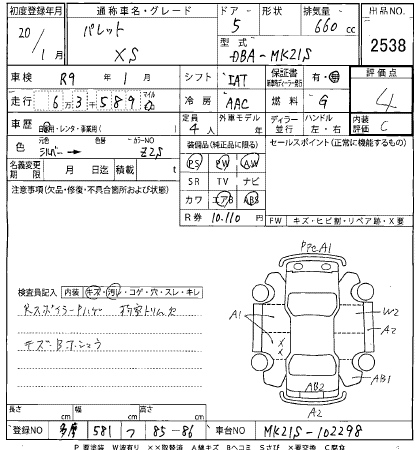 初度登録年月 通称車名・グレード ドア 形状 排気量 出品NO
20/1月 パレット XS 5 660cc 2538
型式 DBA-MK21S
車検 R9年1月 シフト IAT 保証書 有・無 評価点 4
走行 63589 マイル 冷房 AAC 燃料 G
車歴 自家用・レンタ・事業用( ) 定員 4人 外車モデル 年 ディーラー 並行 ハンドル 左・右 内装評価 C
色 元色 シルバー 色替 カラーNO Z2S 装備品(純正品に限る) セールスポイント(正常に機能するもの)
名義変更期限 月 日迄 積載 t PS PW AW
注意事項(欠品・修復・不具合箇所および状態) SR TV ナビ
カワ エアB ABS
R券 10.110円 FW キズ・ヒビ割・リペア跡・X要
PテcA1
検査員記入 内装 キズ・汚レ・コゲ・穴・スレ・キレ
A1 W2 A2
キズ・
AB1
AB2
A2
長さ cm 幅 cm 高さ cm
登録NO 多摩 581 つ 85-86 車台NO MK21S-102298
P要塗装 W波有り XX取替済 A線キズ Bヘコミ Sさび X要交換 C腐食